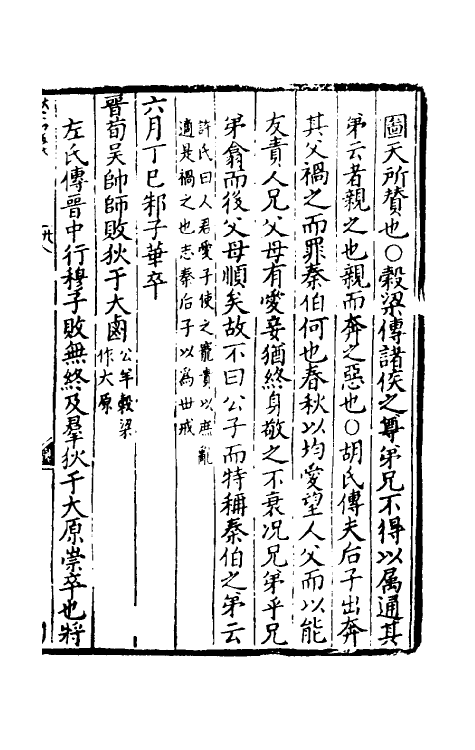 國天所贊也○穀梁傳諸侯之尊弟兄不得以属通其
弟云者親之也親而奔之惡也○胡氏傳夫后子出奔
其父禍之而罪秦伯何也春秋以均愛望人父而以能
友責人兄父母有愛妾猶終身敬之不衰况兄弟乎兄
弟翕而後父母順矣故不曰公子而特稱秦伯之弟云
許氏曰人君愛子使之寵貴以庶亂
適是禍之也志秦后子以爲世戒
六月丁巳邾子華卒
晉荀吳帥師敗狄于大鹵公羊穀梁
作大原
左氏傳晉中行穆子敗無終及羣狄于大原崇卒也將